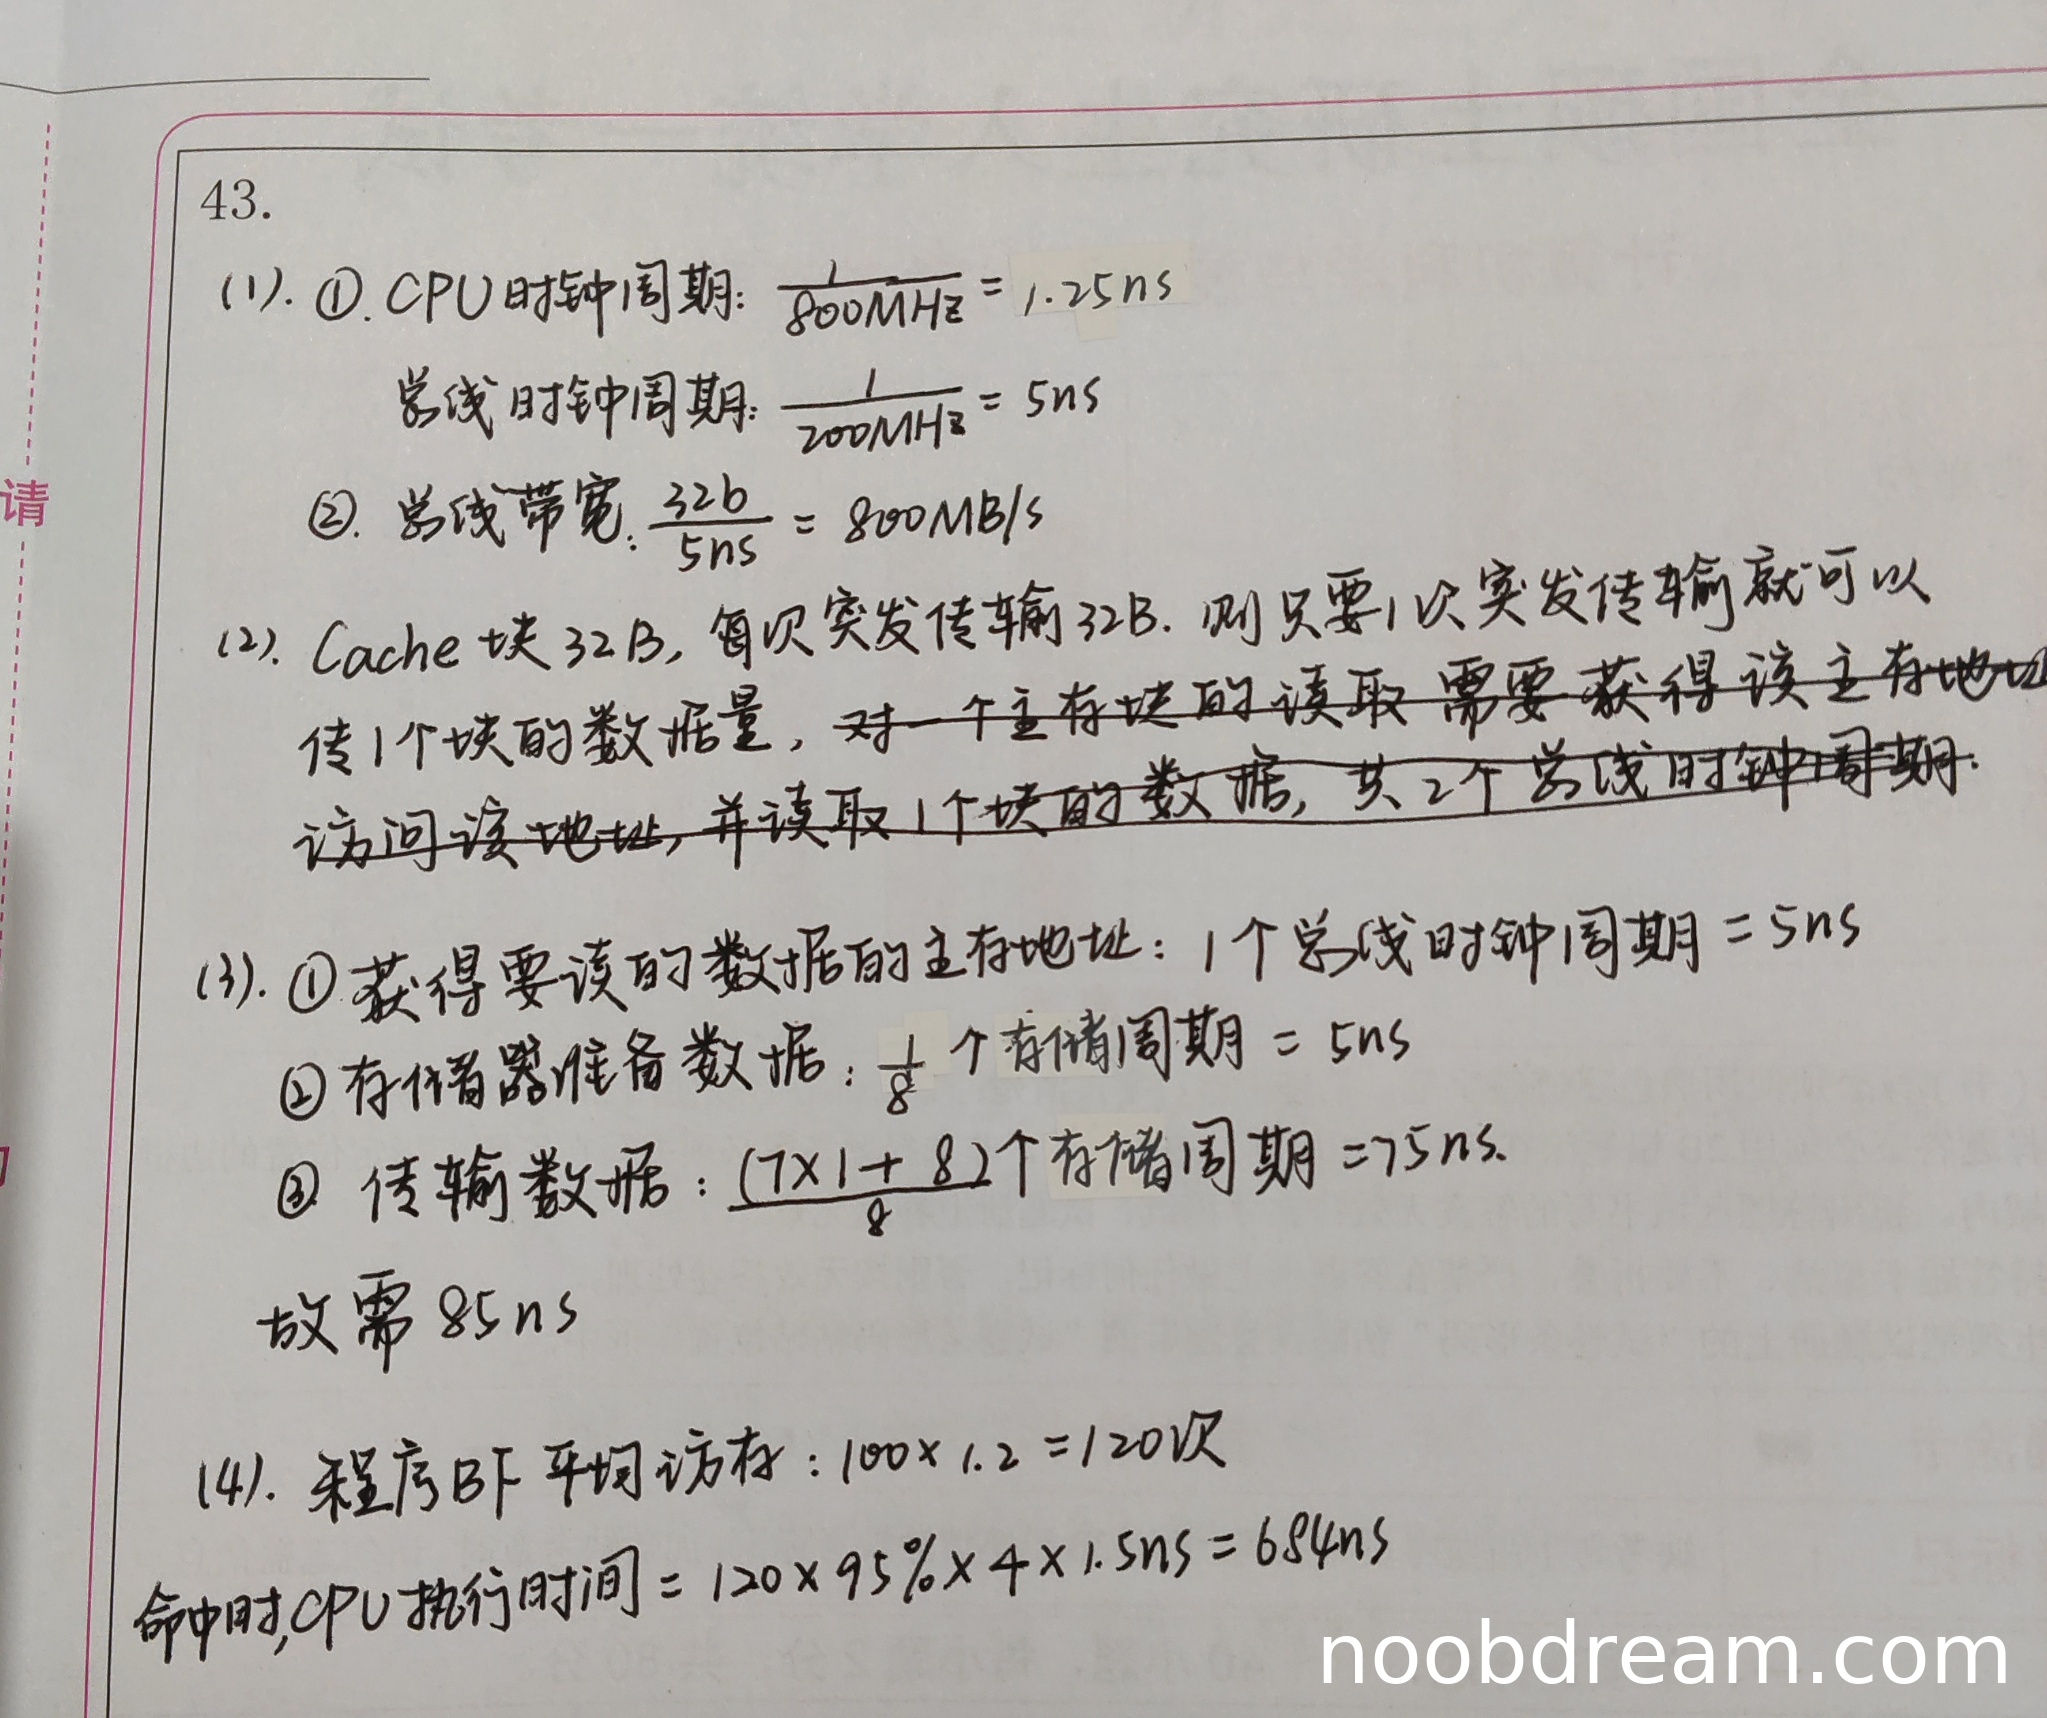 43.
(1). ①. CPU时钟周期: 1/800MHz = 1.25ns
总线时钟周期: 1/200MHz = 5ns
②. 总线带宽: 32b/5ns = 800MB/s
(2). Cache块32B, 每次突发传输32B. 则只要1次突发传输就可以
传1个块的数据量, 对一个主存块的读取需要获得该主存地址
访问该地址, 并读取1个块的数据, 共2个总线时钟周期.
(3). ①获得要读的数据的主存地址: 1个总线时钟周期 = 5ns
②存储器准备数据: 1/8 个存储周期 = 5ns
③ 传输数据: (7×1+8)/8 个存储周期 = 75ns.
故需85ns
(4). 程序BF平均访存: 100×1.2 = 120次
命中时, CPU执行时间 = 120×95%×4×1.5ns = 684ns
请
noobdream.com